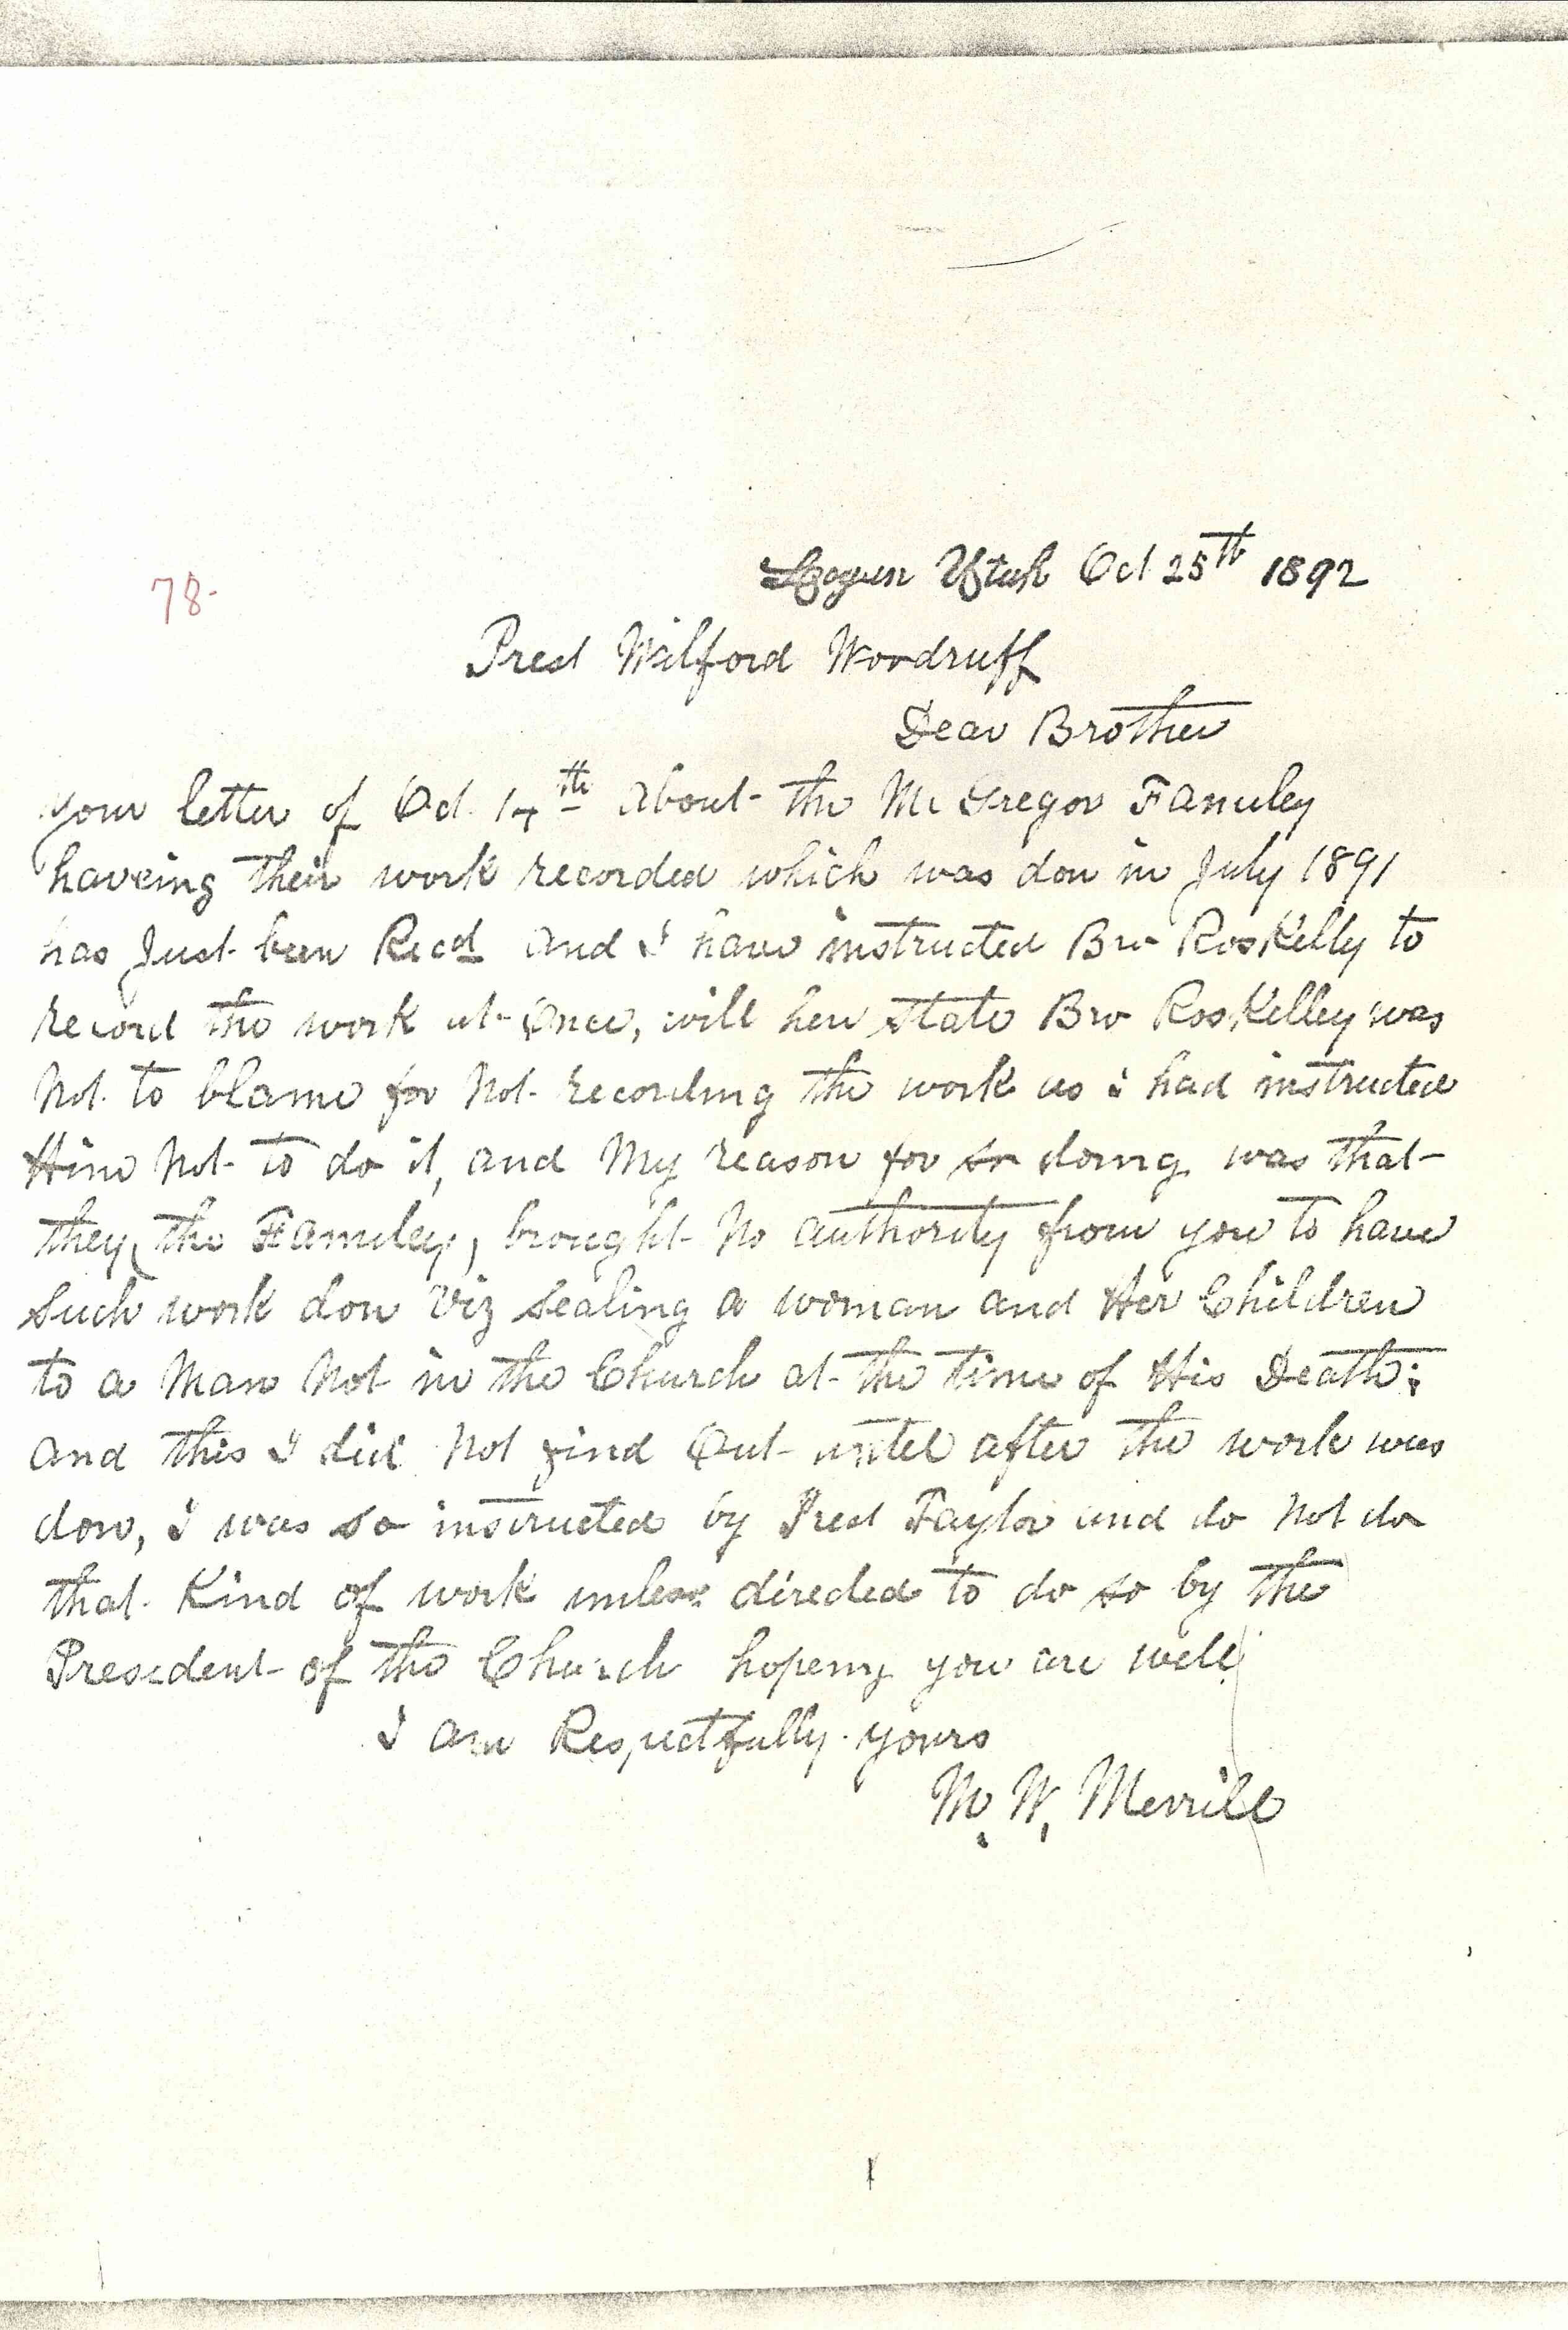 78-
Logan Utah Oct 25th 1892
Prest Wilford Woodruff
Dear Brother
your letter of Oct. 14th about the McGregor Famuley
haveing their work recorded which was don in July 1891
has Just been Recd and I have instructed Bro Roskelly to
record the work at once, will here state Bro Roskelley was
Not to blame for Not recording the work as i had instructed
Him Not to do it, and My reason for so doing was that
they, the Famuley, brought No authority from you to have
Such work don viz Sealing a woman and Her Children
to a Man Not in the Church at the time of His Death;
and this I did Not find Out untel after the work was
don, I was so instructed by Prest Taylor and do Not do
that Kind of work unless directed to do so by the
President of the Church hopeing you are well
I am Respectfully yours
M. W. Merrill